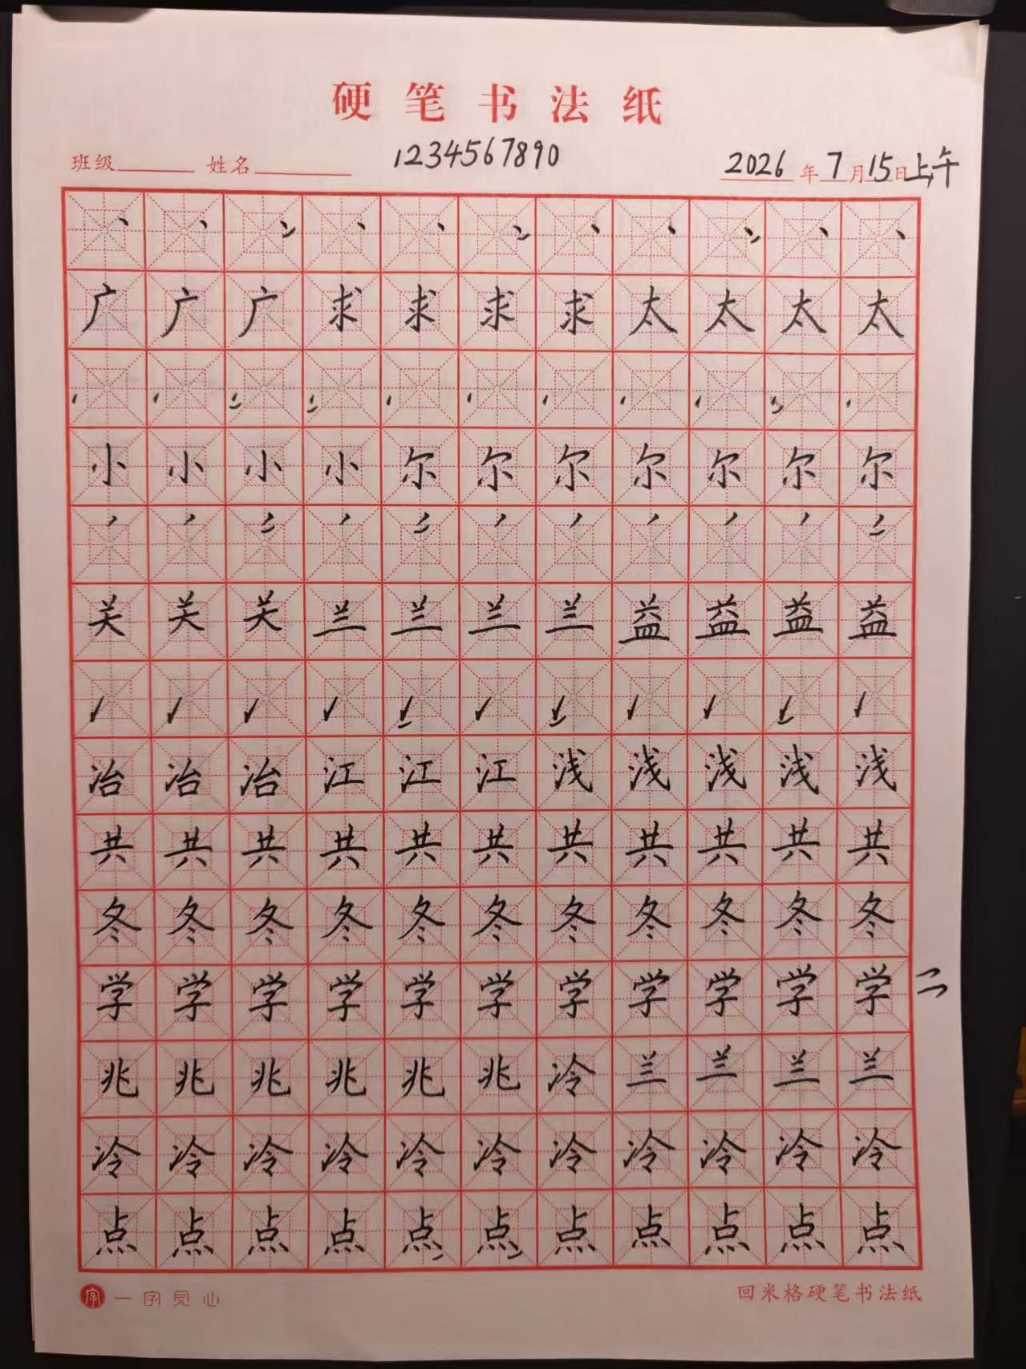 硬笔书法纸
班级 姓名 1234567890 2026年7月15日上午
丶丶丶丶丶丶丶丶丶丶丶
广广广求求求求太太太太
小小小小尔尔尔尔尔尔尔
关关关兰兰兰兰益益益益
冶冶冶江江江浅浅浅浅浅
共共共共共共共共共共共
冬冬冬冬冬冬冬冬冬冬冬
学学学学学学学学学学学
兆兆兆兆兆兆冷兰兰兰兰
冷冷冷冷冷冷冷冷冷冷冷
点点点点点点点点点点点
字 一字见心 回米格硬笔书法纸